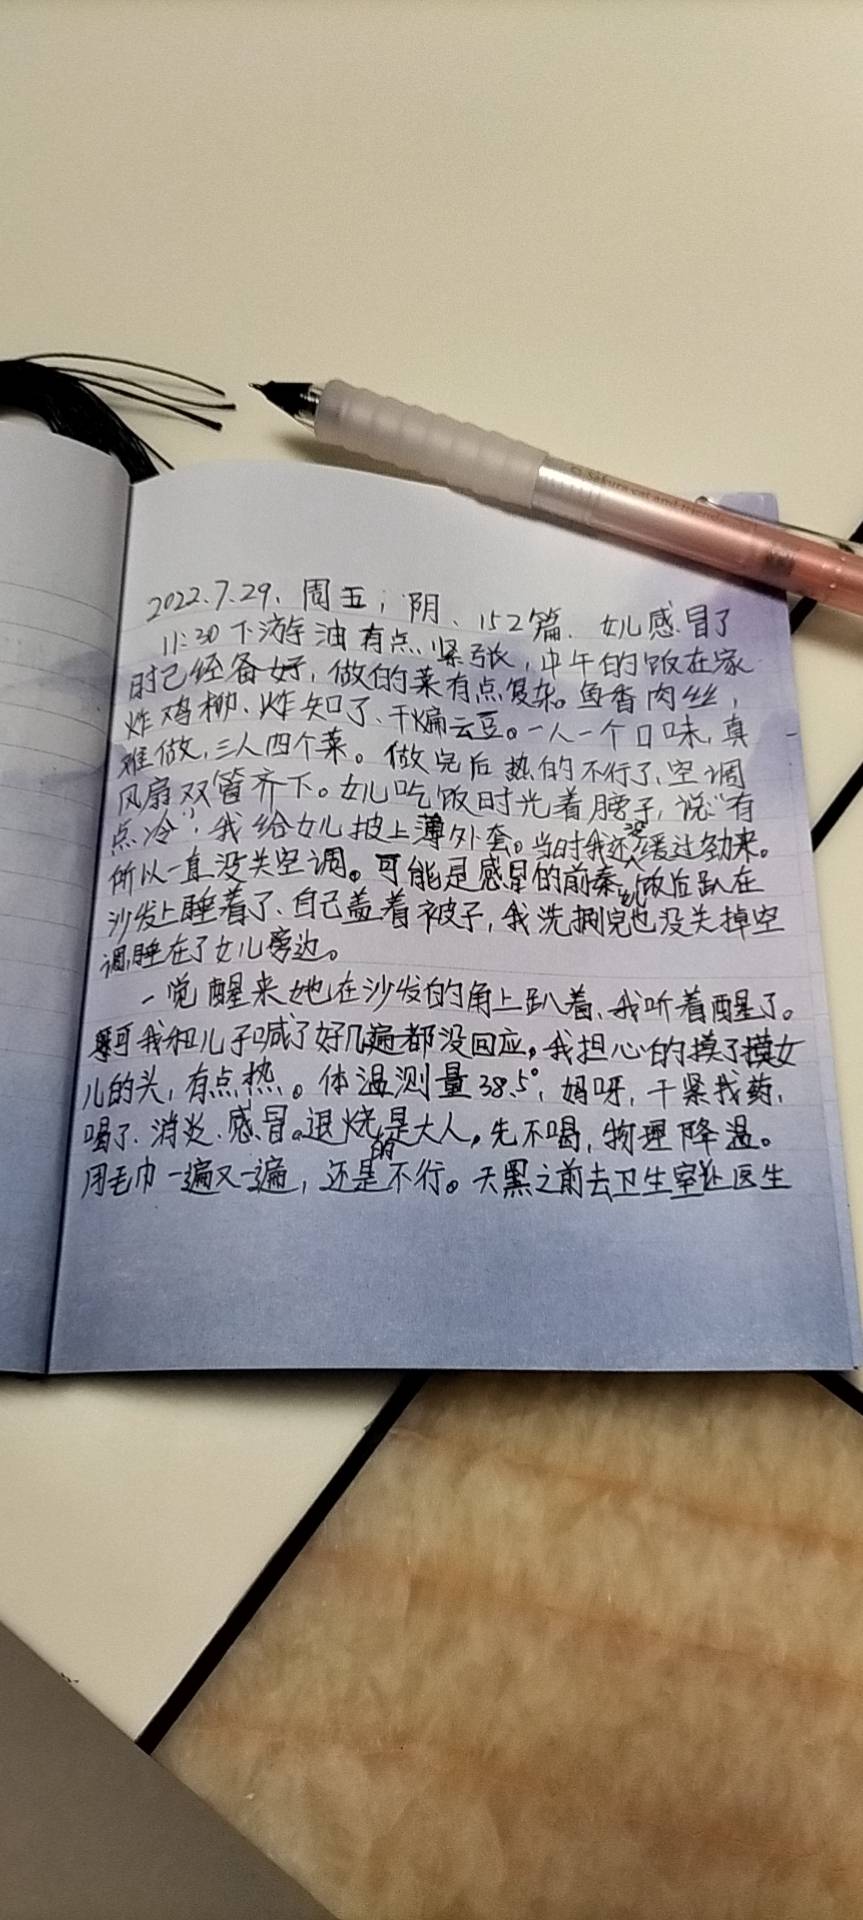 2022.7.29、周五；阴、152篇、女儿感冒了
11:30下游泳有点紧张，中午的饭在家
时已经备好，做的菜有点复杂。鱼香肉丝，
炸鸡柳、炸知了、干煸云豆。一人一个口味，真
难做，三人四个菜。做完后热的不行了、空调
风扇双管齐下。女儿吃饭时光着膀子，说“有
点冷”，我给女儿披上薄外套。当时我还没缓过劲来。
所以一直没关空调。可能是感冒的前奏，饭后趴在
沙发上睡着了、自己盖着被子，我洗涮完也没关掉空
调，睡在了女儿旁边。
一觉醒来她在沙发的角上趴着、我听着醒了。
可我和儿子喊了好几遍都没回应，我担心的摸了摸女
儿的头，有点热。体温测量38.5°，妈呀，干紧找药，
喝了、消炎、感冒。退烧的是大人，先不喝，物理降温。
用毛巾一遍又一遍，还是不行。天黑之前去卫生室让医生
Sakura